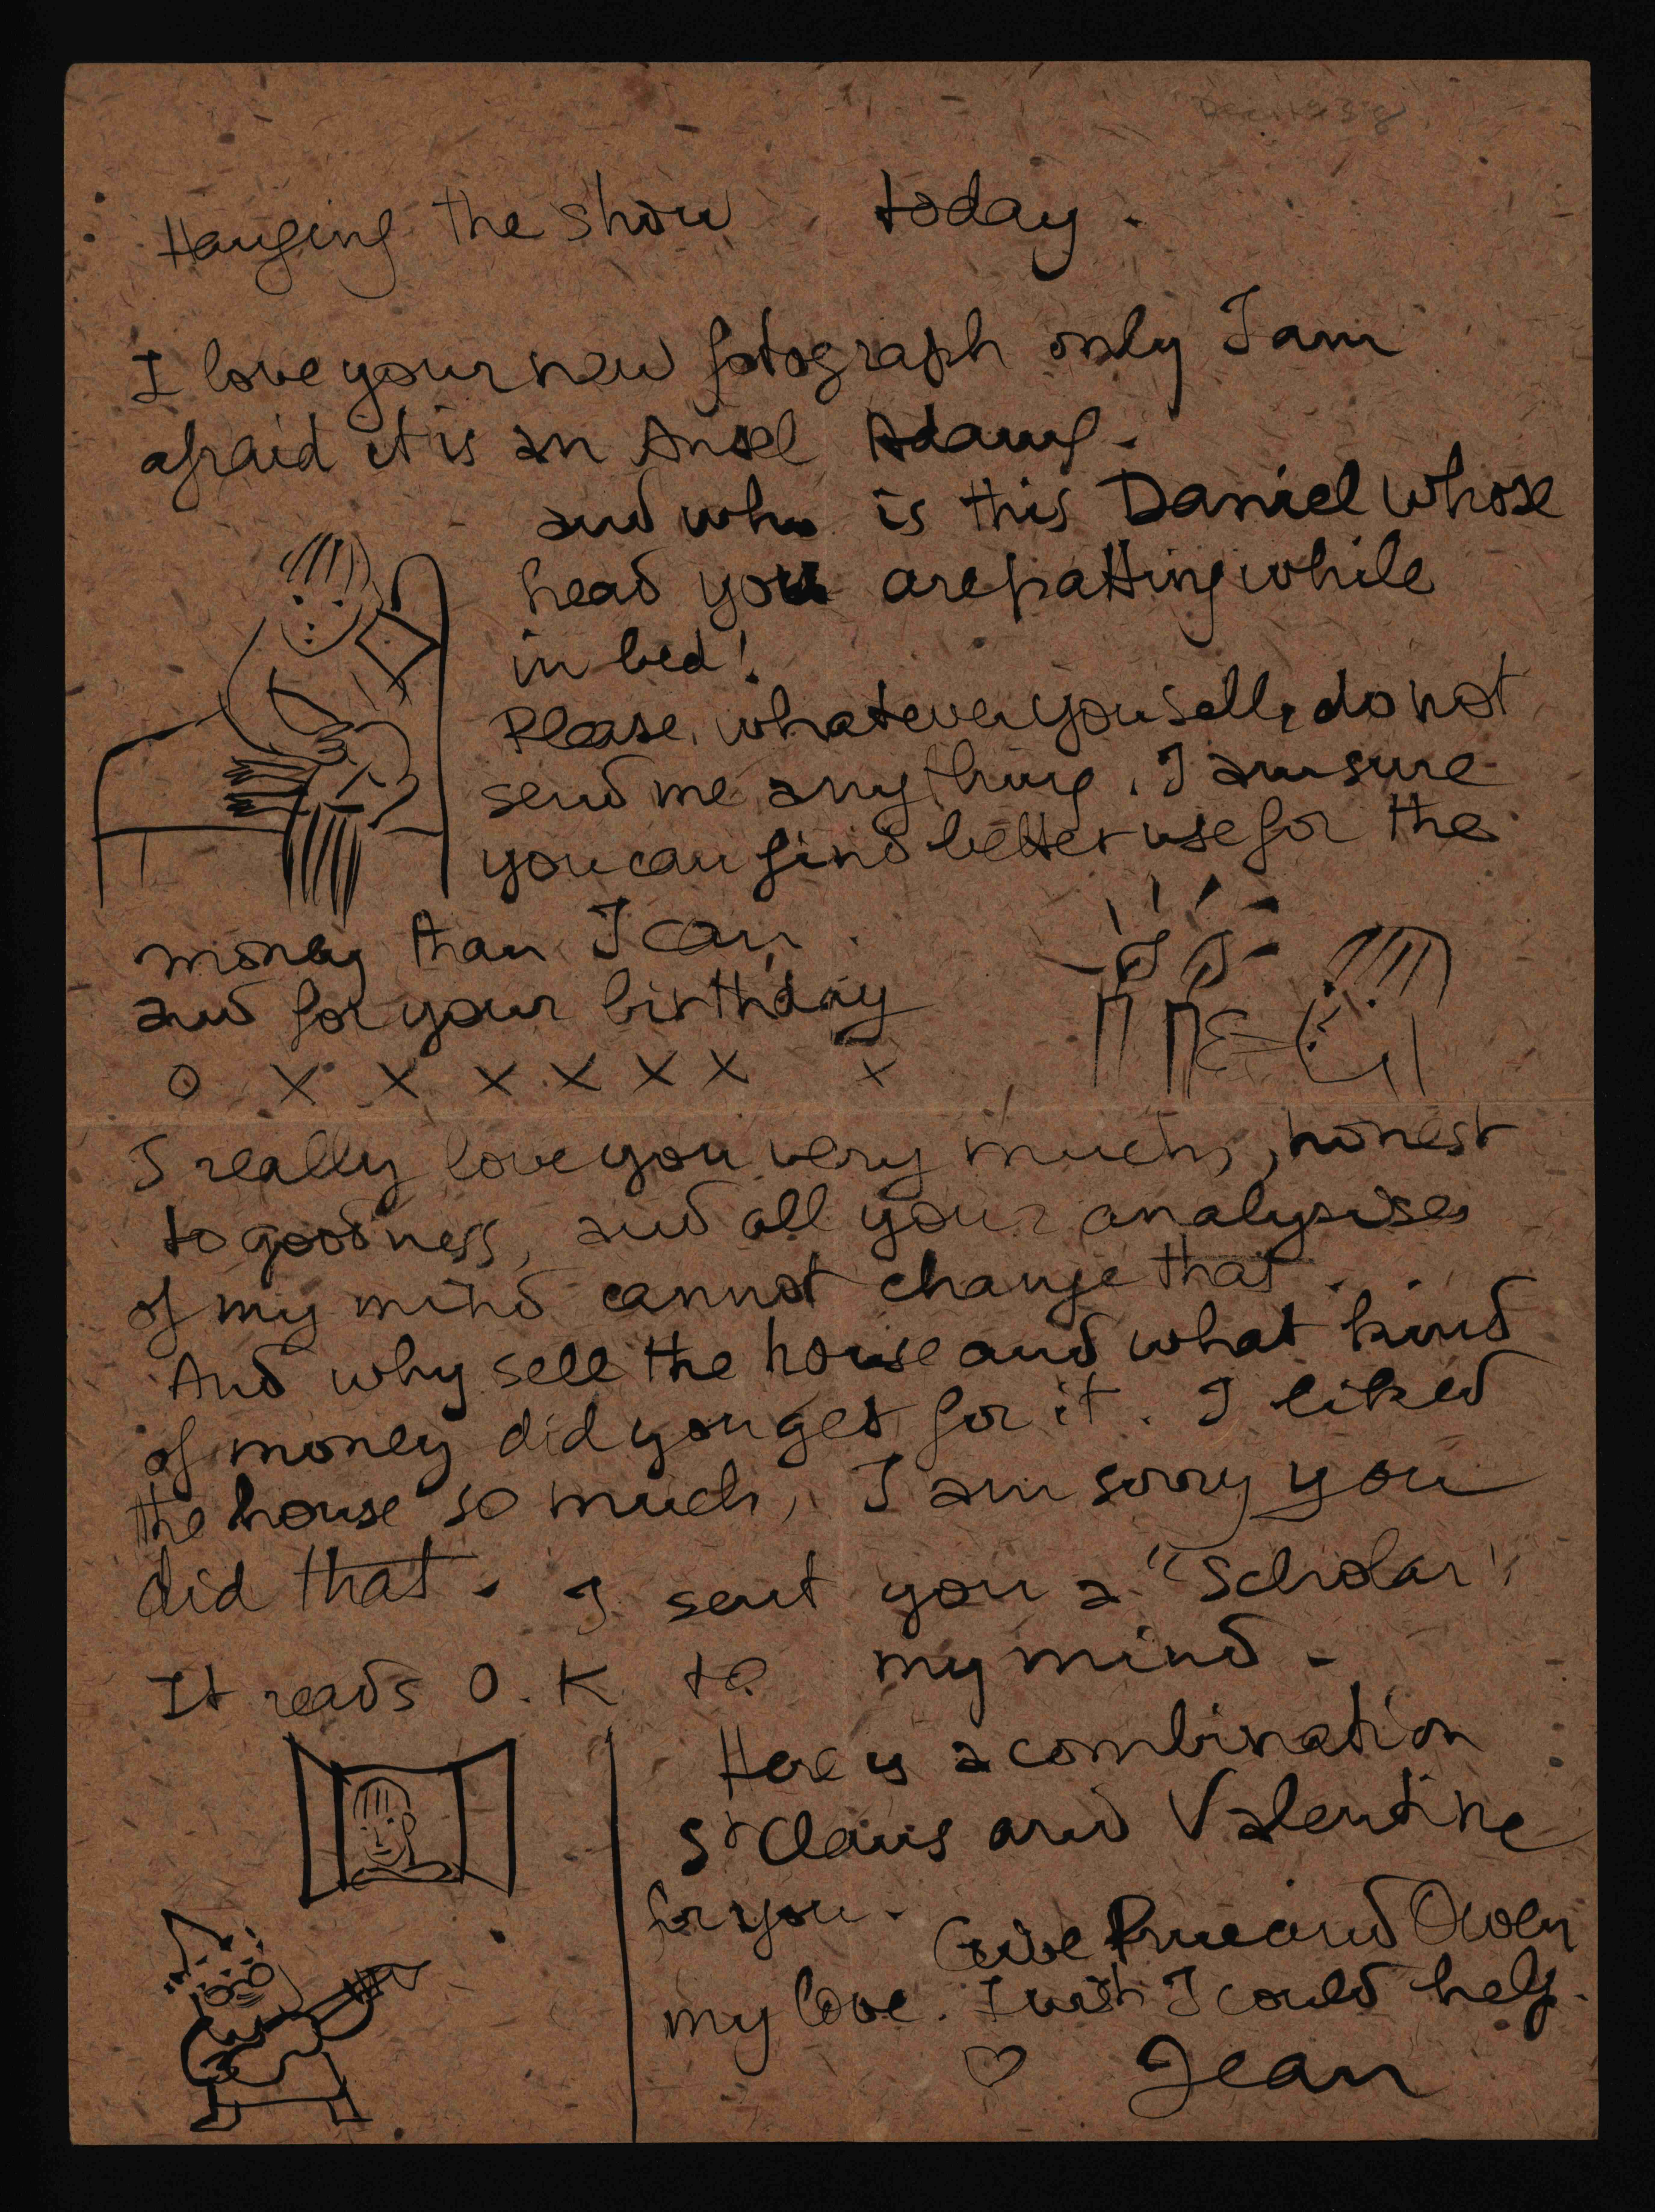 Hanging the show today.
I love your new fotograph only I am
afraid it is an Ansel Adams.
and who is this Daniel whose
head you are patting while
in bed!
Please, whatever you sell, do not
send me anything. I am sure
you can find better use for the
money than I can.
and for your birthday
O X X X X X X X
I really love you very much, honest
to goodness, and all your analysises
of my mind cannot change that.
And why sell the house and what kind
of money did you get for it. I liked
the house so much, I am sorry you
did that. I sent you a "Scholar"
It reads O.K. to my mind.
Here is a combination
St Claus and Valentine
for you. Give Prue and Owen
my love. I wish I could help.
♡ Jean